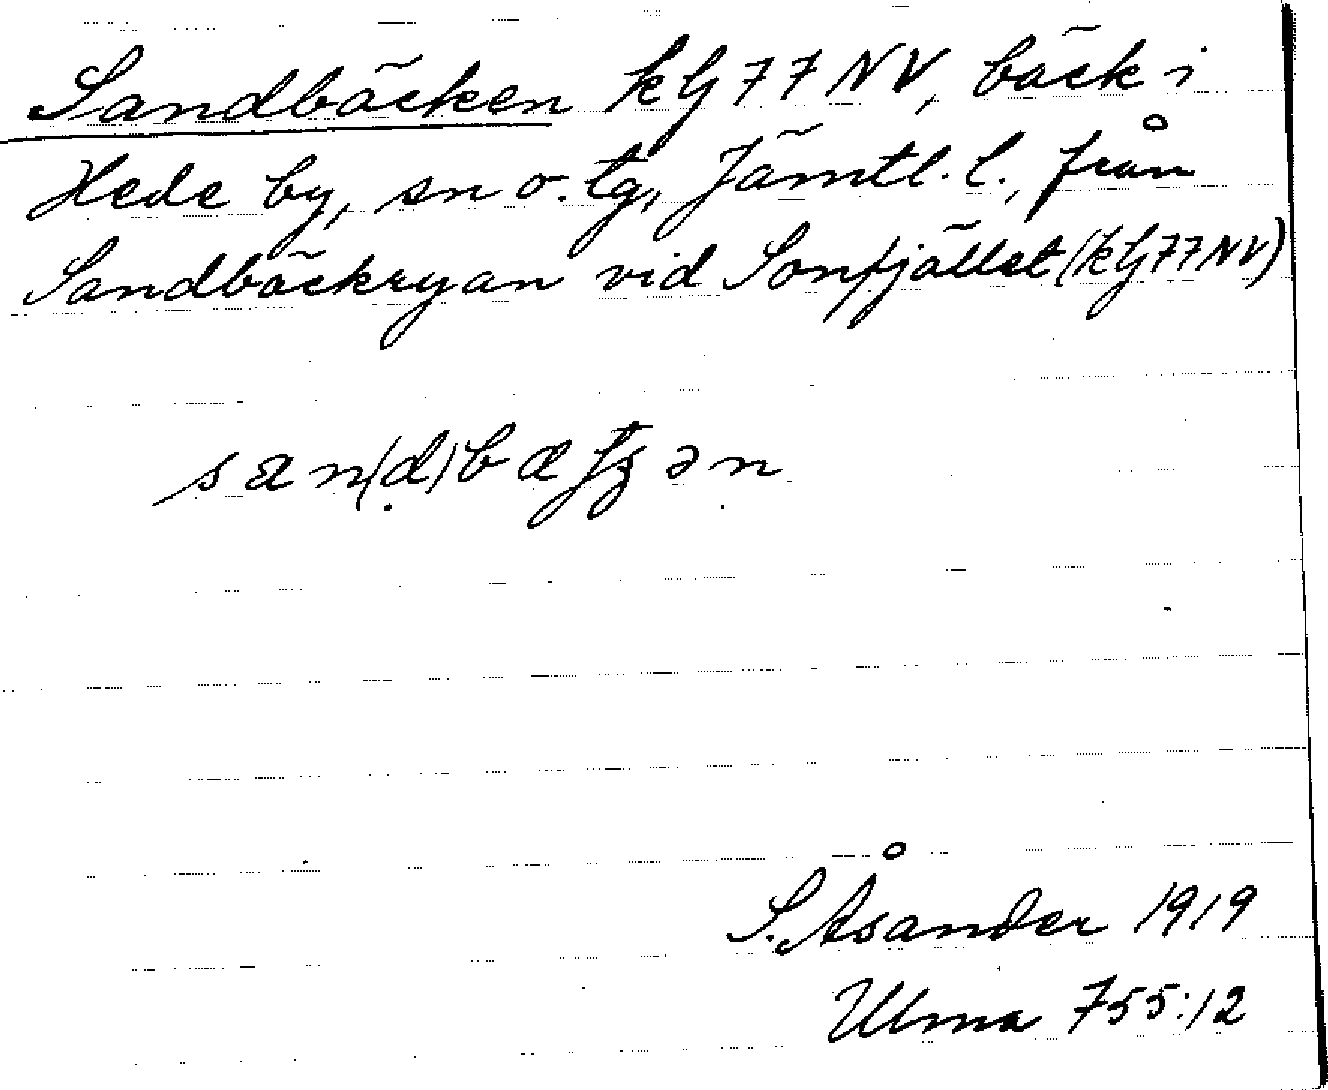 Sandbäcken kbl 77 NV, bäck i
Hede by, sn o. tg, Jämtl. l., från
Sandbäckryan vid Sonfjället (kbl 77 NV)
S. Åsander 1919
Ulma 755:12